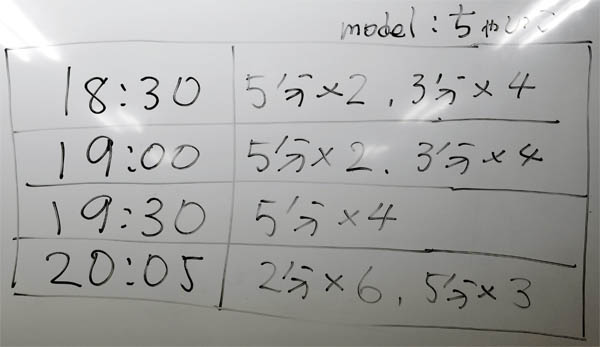 model : ちゃいこ
18:30 5分×2 , 3分×4
19:00 5分×2 , 3分×4
19:30 5分×4
20:05 2分×6 , 5分×3